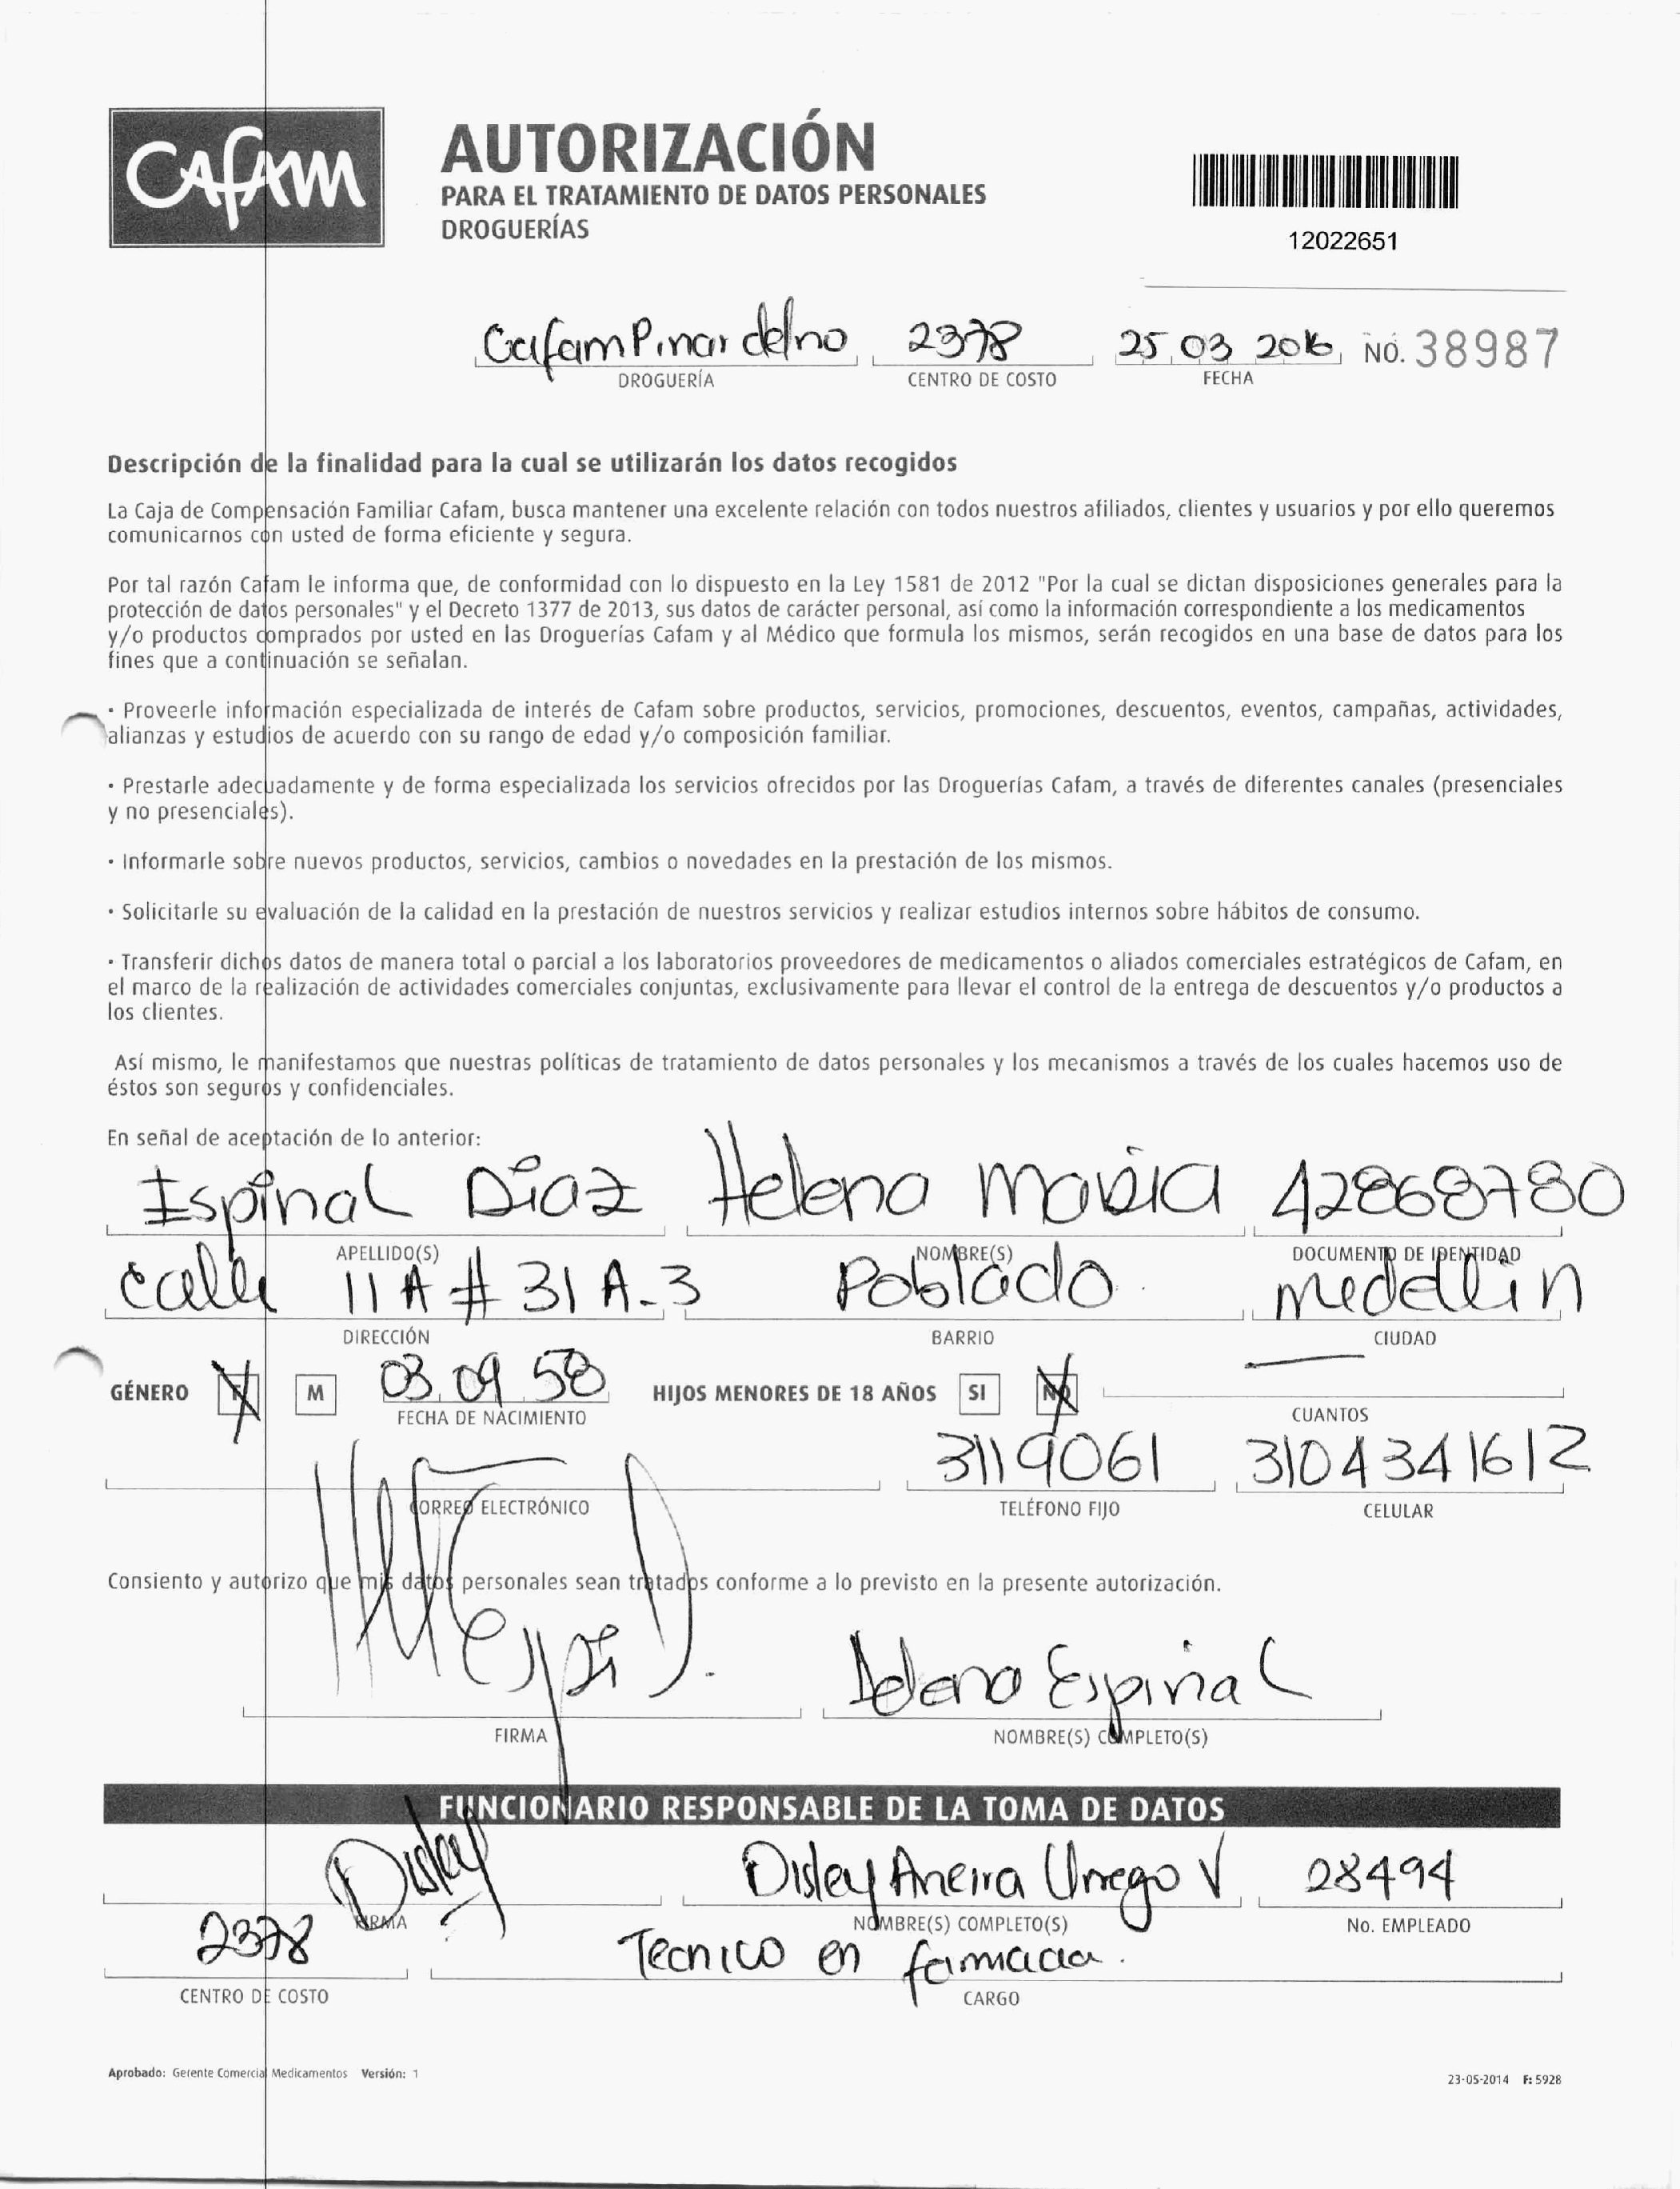 Cafam
AUTORIZACIÓN
PARA EL TRATAMIENTO DE DATOS PERSONALES
DROGUERÍAS
12022651
Cafam Pinar del rio 2378 25 03 2016 NO. 38987
DROGUERÍA CENTRO DE COSTO FECHA
Descripción de la finalidad para la cual se utilizarán los datos recogidos
La Caja de Compensación Familiar Cafam, busca mantener una excelente relación con todos nuestros afiliados, clientes y usuarios y por ello queremos
comunicarnos con usted de forma eficiente y segura.
Por tal razón Cafam le informa que, de conformidad con lo dispuesto en la Ley 1581 de 2012 "Por la cual se dictan disposiciones generales para la
protección de datos personales" y el Decreto 1377 de 2013, sus datos de carácter personal, así como la información correspondiente a los medicamentos
y/o productos comprados por usted en las Droguerías Cafam y al Médico que formula los mismos, serán recogidos en una base de datos para los
fines que a continuación se señalan.
· Proveerle información especializada de interés de Cafam sobre productos, servicios, promociones, descuentos, eventos, campañas, actividades,
alianzas y estudios de acuerdo con su rango de edad y/o composición familiar.
· Prestarle adecuadamente y de forma especializada los servicios ofrecidos por las Droguerías Cafam, a través de diferentes canales (presenciales
y no presenciales).
· Informarle sobre nuevos productos, servicios, cambios o novedades en la prestación de los mismos.
· Solicitarle su evaluación de la calidad en la prestación de nuestros servicios y realizar estudios internos sobre hábitos de consumo.
· Transferir dichos datos de manera total o parcial a los laboratorios proveedores de medicamentos o aliados comerciales estratégicos de Cafam, en
el marco de la realización de actividades comerciales conjuntas, exclusivamente para llevar el control de la entrega de descuentos y/o productos a
los clientes.
Así mismo, le manifestamos que nuestras políticas de tratamiento de datos personales y los mecanismos a través de los cuales hacemos uso de
éstos son seguros y confidenciales.
En señal de aceptación de lo anterior:
Espinal Diaz Helena Maria 42868780
APELLIDO(S) NOMBRE(S) DOCUMENTO DE IDENTIDAD
calle 11 A # 31 A-3 Poblado. medellin
DIRECCIÓN BARRIO CIUDAD
GÉNERO F M 03 09 58 HIJOS MENORES DE 18 AÑOS SI NO
FECHA DE NACIMIENTO CUANTOS
3119061 3104341612
CORREO ELECTRÓNICO TELÉFONO FIJO CELULAR
Consiento y autorizo que mis datos personales sean tratados conforme a lo previsto en la presente autorización.
Helena Espinal
FIRMA NOMBRE(S) COMPLETO(S)
FUNCIONARIO RESPONSABLE DE LA TOMA DE DATOS
Disley Disley Aneira Urrego V 28494
FIRMA NOMBRE(S) COMPLETO(S) No. EMPLEADO
2378 Tecnico en farmacia.
CENTRO DE COSTO CARGO
Aprobado: Gerente Comercial Medicamentos Versión: 1
23-05-2014 F: 5928